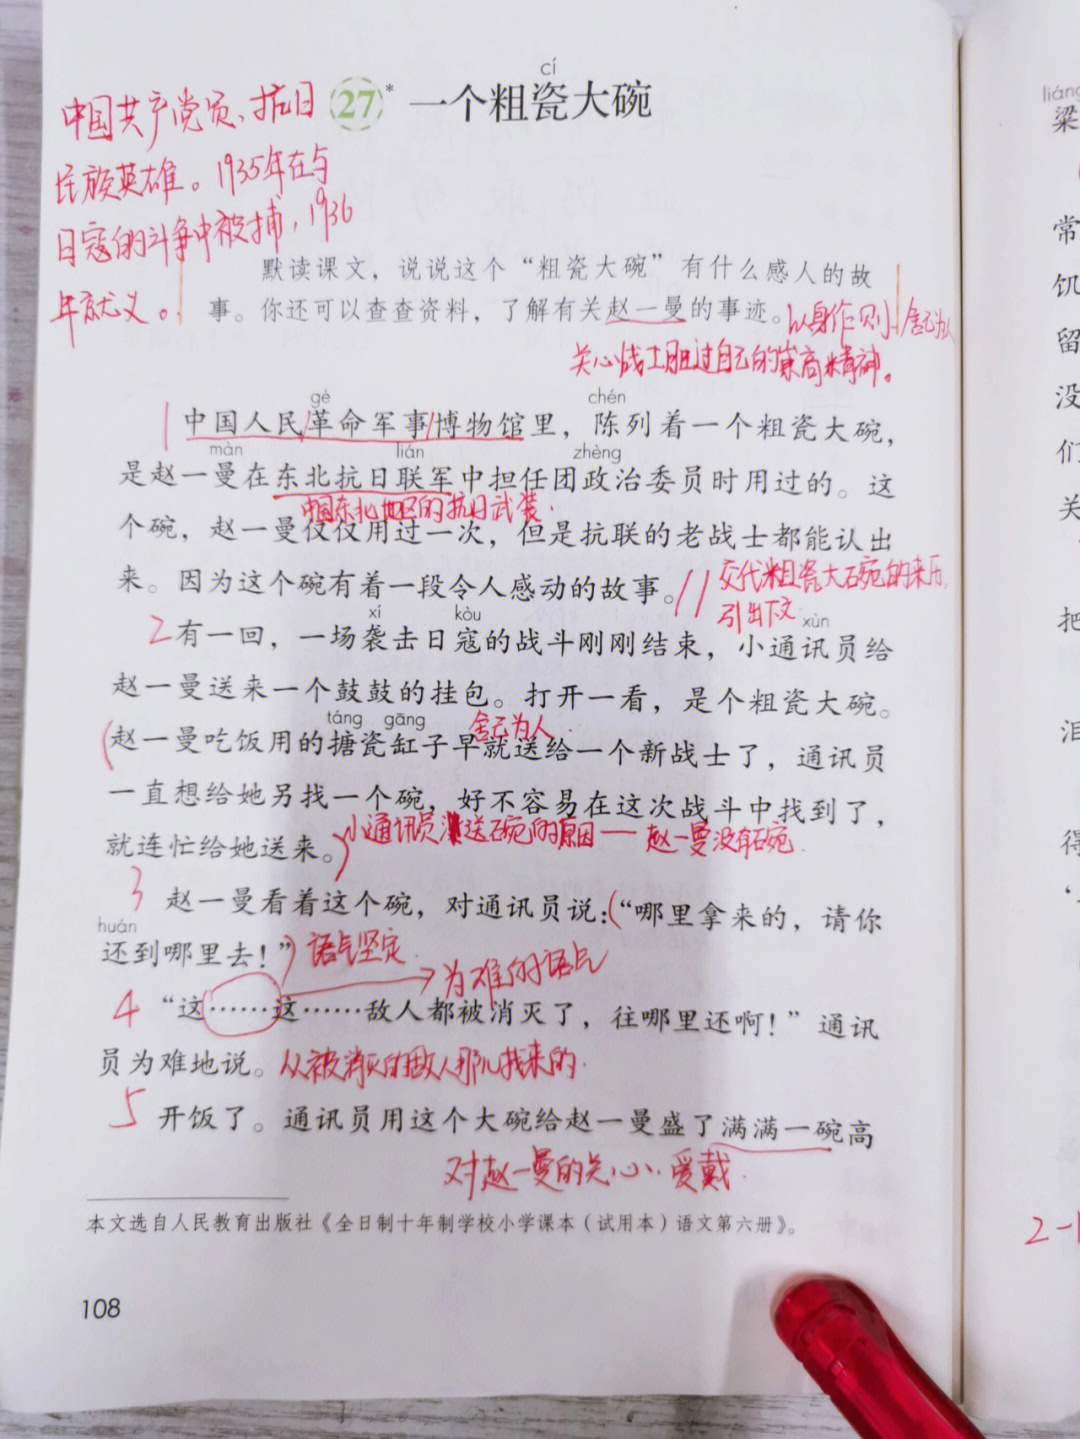 cí
中国共产党员、抗日 27* 一个粗瓷大碗
民族英雄。1935年在与
日寇的斗争中被捕，1936
年就义。
默读课文，说说这个“粗瓷大碗”有什么感人的故
事。你还可以查查资料，了解有关赵一曼的事迹。以身作则 舍己为人
关心战士胜过自己的崇高精神。
gé chén
1 中国人民/革命军事/博物馆里，陈列着一个粗瓷大碗，
màn lián zhèng
是赵一曼在东北抗日联军中担任团政治委员时用过的。这
中国东北地区的抗日武装.
个碗，赵一曼仅仅用过一次，但是抗联的老战士都能认出
来。因为这个碗有着一段令人感动的故事。// 交代粗瓷大碗的来历,
引出下文.
xí kòu xùn
2 有一回，一场袭击日寇的战斗刚刚结束，小通讯员给
赵一曼送来一个鼓鼓的挂包。打开一看，是个粗瓷大碗。
táng gāng 舍己为人.
(赵一曼吃饭用的搪瓷缸子早就送给一个新战士了，通讯员
一直想给她另找一个碗，好不容易在这次战斗中找到了，
就连忙给她送来。) 小通讯员送碗的原因——赵一曼没有碗.
3 赵一曼看着这个碗，对通讯员说：(“哪里拿来的，请你
huán
还到哪里去！”) 语气坚定. 为难的语气
4 “这……这……敌人都被消灭了，往哪里还啊！”通讯
员为难地说。从被消灭的敌人那儿找来的.
5 开饭了。通讯员用这个大碗给赵一曼盛了满满一碗高
对赵一曼的关心、爱戴.
本文选自人民教育出版社《全日制十年制学校小学课本（试用本）语文第六册》。
108
liáng
梁
常
饥
留
没
们
关
把
泪
得
2-1